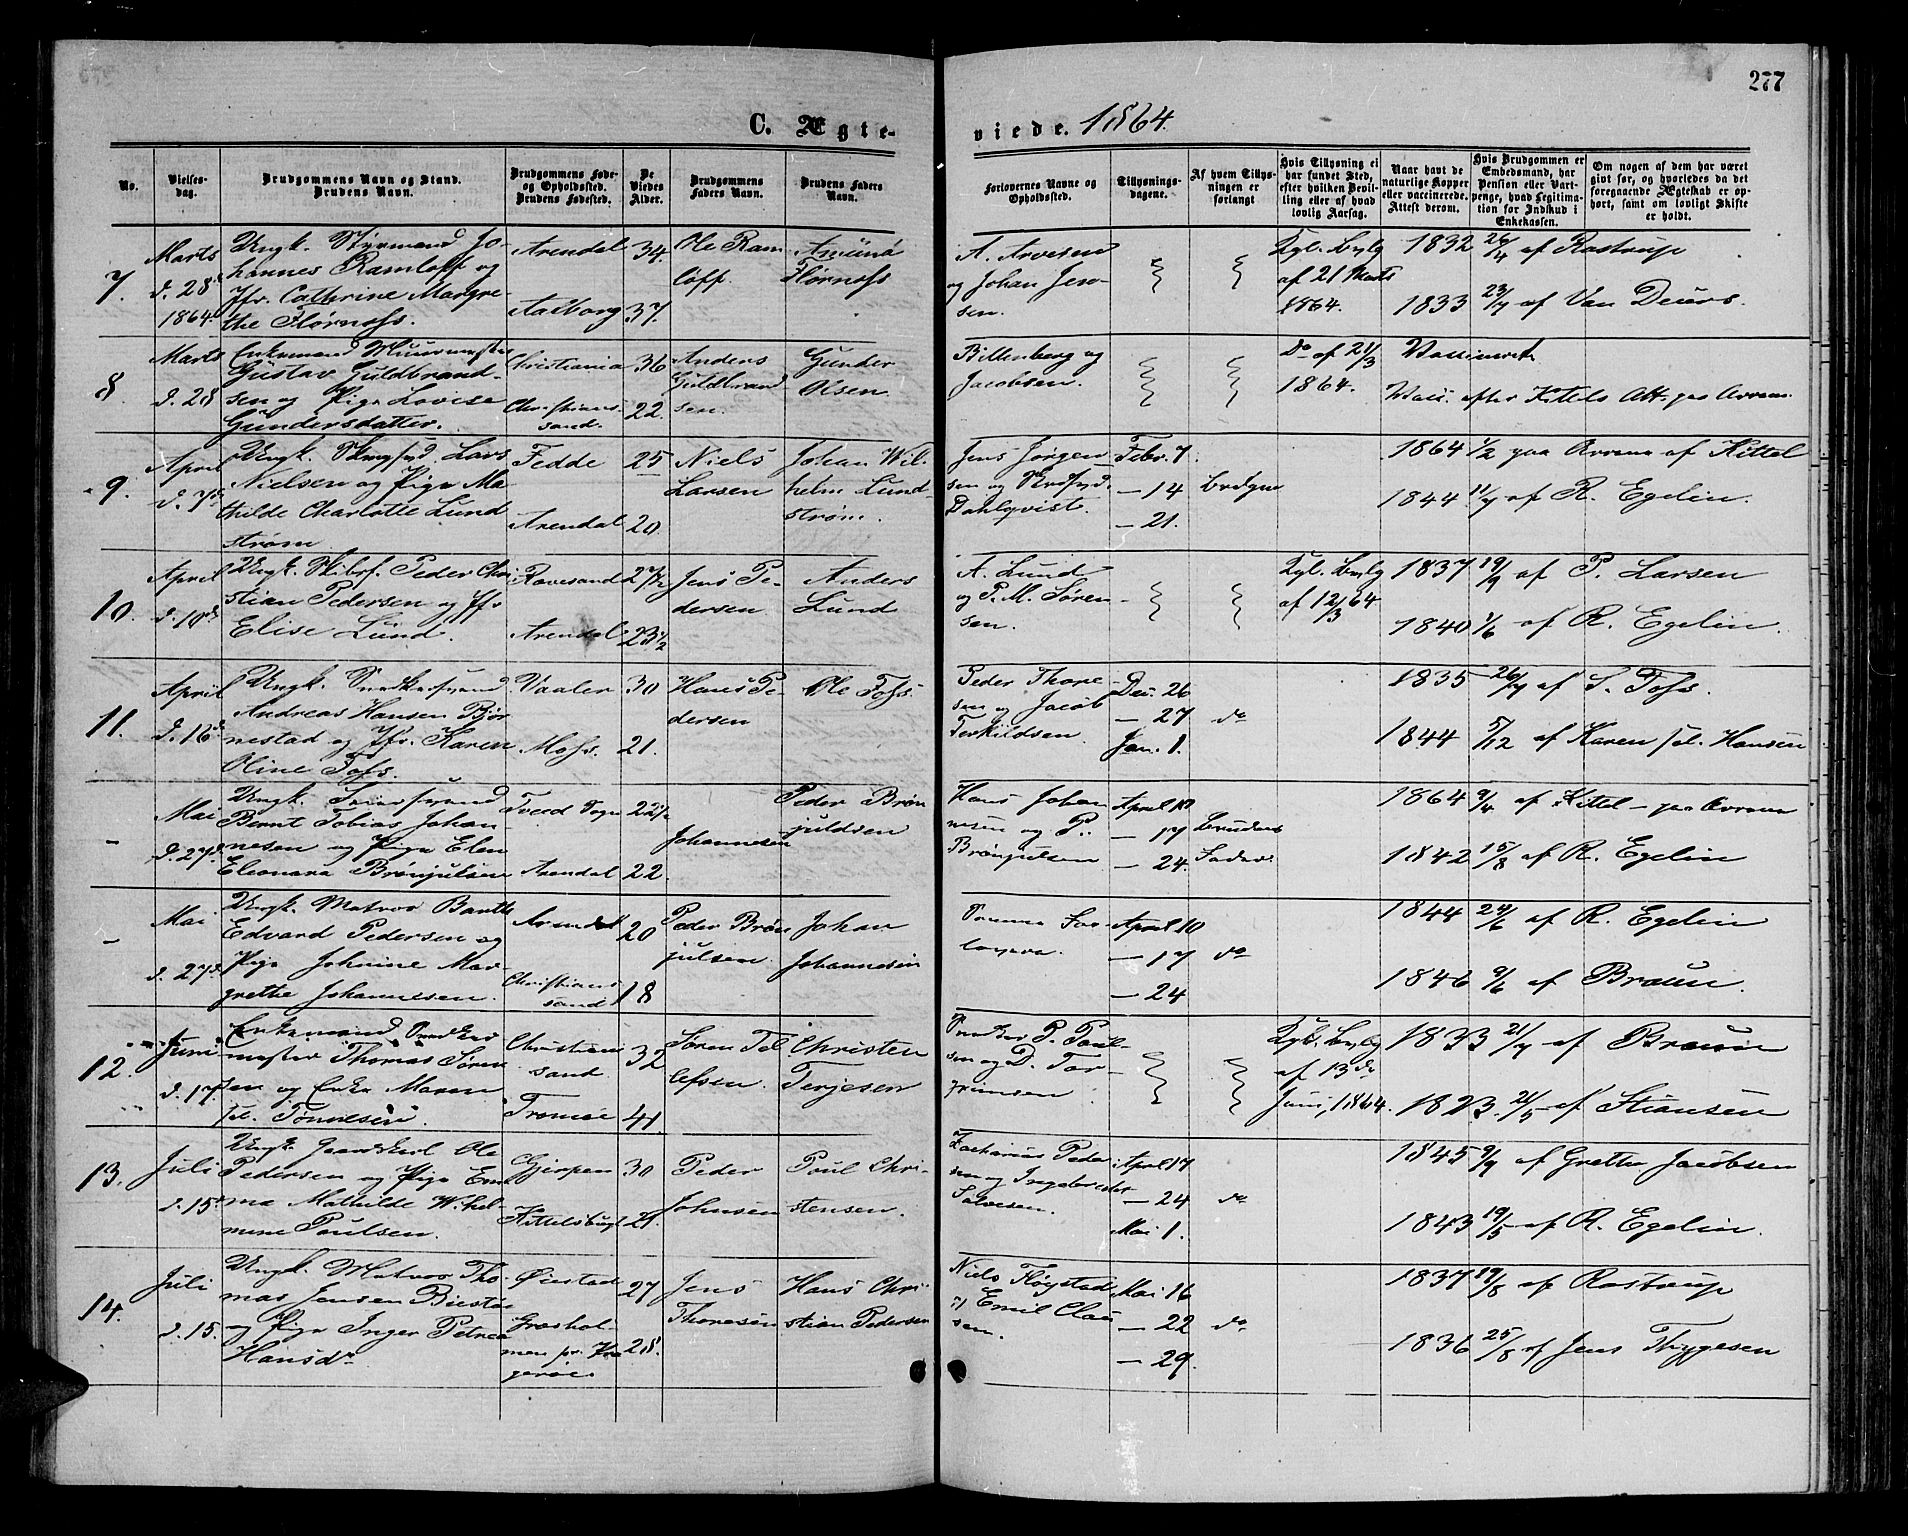 277
C. Ægte-
viede. 1864.
No.
Vielses-
dag.
Brudgommens Navn og Stand.
Brudens Navn.
Brudgommens Føde-
og Opholdssted.
Brudens Fødested.
De
Viedes
Alder.
Brudgommens
Faders Navn.
Brudens Faders
Navn.
Forlovernes Navne og
Opholdssted.
Tillysnings-
dagene.
Af hvem Tillys-
ningen er
forlangt
Hvis Tillysning ei
har fundet Sted,
efter hvilken Bevil-
ling eller af hvad
lovlig Aarsag.
Naar havt de
naturlige Kopper
eller vaccinerede.
Attest derom.
Hvis Brudgommen er
Embedsmand, har
Pension eller Vart-
penge, hvad Legitima-
tion for Indskud i
Enkekassen.
Om nogen af dem har været
givt før, og hvorledes da det
foregaaende Ægteskab er op-
hørt, samt om lovligt Skifte
er holdt.
7.
Marts
d. 28
1864.
Ungk. Styrmand Jo-
hannes Ramloff og
Jfr. Cathrine Margre-
the Flørnoss.
Arendal
Aalborg
34.
37.
Ole Ram
loff.
Flørnoss
A. Arvesen
og Johan Jen-
sen.
Kgl. Bvlg
af 21 Marts
1864.
1832 26/4 af Rostrup
1833 23/7 af Van Deurs.
8.
Marts
d. 28
Enkemand Muurmester
Gustav Guldbrand-
sen og Pige Lovise
Gundersdatter.
Christiania
Christians-
sand.
36
22.
Anders
Guldbrand
sen.
Gunder
Olsen
Billenberg og
Jacobsen.
Do af 21/3
1864.
Vaccineret
Vacc. efter Kitels Att. paa Ovrene
9.
April
d. 7d
Ungk. Lars
Nielsen og Pige Ma
thilde Charlotte Lund
strøm
Fedde
Arendal
25
20.
Niels
Larsen
Johan Wil-
helm Lund-
strøm.
Jens Jørgen
sen og
Dahlqvist.
Febr. 7
— 14
— 21.
Brdgm
1864 1/2 paa Ovrene af Kittel
1844 11/7 af R. Egelin.
10.
April
d. 10d
Ungk. Skibsf. Peder Chri
stian Pedersen og Jfr
Elise Lund.
Ravesand
Arendal
27 1/2
23 1/2
Jens Pe-
dersen
Anders
Lund
A. Lund
og P. M. Søren
sen.
Kgl. Bvlg
af 12/3 64
1837 19/9 af P. Larsen
1840 1/6 af R. Egelin.
11.
April
d. 16d
Ungk. Snedkersvend
Andreas Hansen Bjør
nestad og Jfr. Karen
Oline Foss.
Vaaler
Moss.
30
21.
Hans Pe-
dersen
Ole Foss
Peder Thore-
sen og Jacob
Terkildsen.
Dec. 26
— 27
Jan. 1.
do
1835 26/7 af S. Foss.
1844 5/12 af Karen sal. Hansen
–
Mai
d. 27d
Ungk.
Bernt Tobias Johan-
nesen og Pige Elen
Eleonara Brønjulsen
Tveed Sogn
Arendal
22 1/2
22.
Johannesen
Peder Brøn
juldsen
Hans Johan
nesen og P.
Brønjulsen
April 10
— 17
— 24.
Brudens
Fader
1864 9/4 af Kittel — paa Ovrene
1842 15/8 af R. Egelin
–
Mai
d. 27d
Ungk. Matros Barth
Edvard Pedersen og
Pige Johnine Mar-
grethe Johannesen.
Arendal
Christians
sand
20
18
Peder Brøn
julsen.
Johan
Johannesen
Samme For-
lovere.
April 10
— 17
— 24
do
1844 24/6 af R. Egelin
1846 9/6 af Braun.
12.
Juni
d. 17.
Enkemand Snedker
mester Thomas Søren
sen og Enke Maren
sal. Tønnesen.
Christian
sand
Tromøe
32
41.
Søren Tel
lefsen.
Christen
Terjesen
Snedker P. Poul-
sen og D. Tor-
grimsen
Kgl. Bvlg
af 13de
Juni, 1864.
1833 21/7 af Braun
1823 21/5 af Stiansen
13.
Juli
d. 15
Ungk. Gaardskarl Ole
Pedersen og Pige Em
ma Mathilde Wihel-
mine Poulsen.
Gjerpen
Kittelsbugt
30
21.
Peder
Johnsen
Poul Chri-
stensen.
Zacharias Peder
sen og Ingebret
Salvesen.
April 17
— 24
Mai 1.
do
1845 9/9 af Grethe Jacobsen
1843 19/5 af R. Egelin.
14.
Juli
d. 15.
Ungk. Matros Tho-
mas Jensen
og Pige Inger Petrea
Hansdr.
Øiestad
Græshol-
men pr. Kra
gerøe
27
28.
Jens
Thoresen
Hans Chri-
stian Pedersen
Niels Fløystad
og Emil Clau
sen.
Mai 16
— 22
— 29.
do
1837 19/8 af Rostrup
1836 25/8 af Jens Thygesen